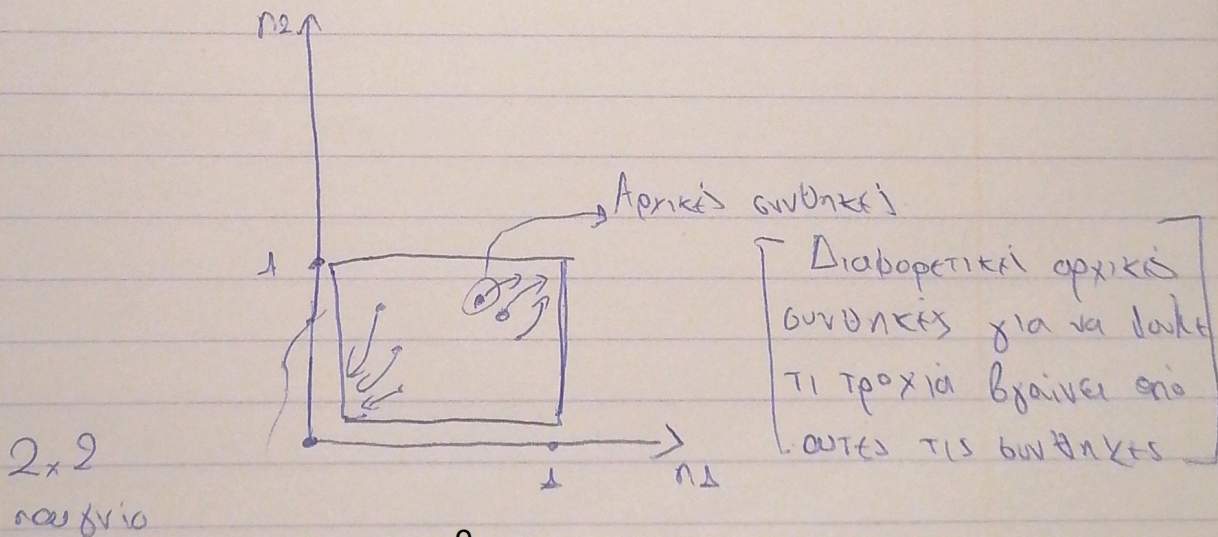 n2
Αρχικές συνθηκές
1
Διαφορετικές αρχικές
συνθηκές για να δουλε
τι τροχιά βγαίνει από
αυτές τις συνθηκες
1
n1
2x2
παιγνιο